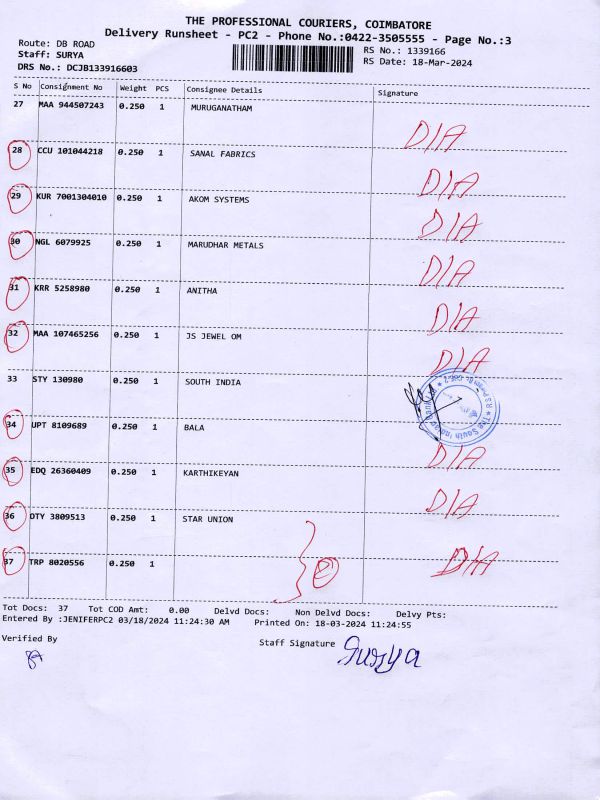 THE PROFESSIONAL COURIERS, COIMBATORE
Delivery Runsheet - PC2 - Phone No.:0422-3505555 - Page No.:3
Route: DB ROAD
RS No.: 1339166
Staff: SURYA
RS Date: 18-Mar-2024
DRS No.: DCJB133916603
S No Consignment No Weight PCS Consignee Details Signature
27 MAA 944507243 0.250 1 MURUGANATHAM
D/A
28 CCU 101044218 0.250 1 SANAL FABRICS
D/A
29 KUR 7001304010 0.250 1 AKOM SYSTEMS
D/A
30 NGL 6079925 0.250 1 MARUDHAR METALS
D/A
31 KRR 5258980 0.250 1 ANITHA
D/A
32 MAA 107465256 0.250 1 JS JEWEL OM
D/A
33 STY 130980 0.250 1 SOUTH INDIA
The South Indian
34 UPT 8109689 0.250 1 BALA
D/A
35 EDQ 26360409 0.250 1 KARTHIKEYAN
D/A
36 DTY 3809513 0.250 1 STAR UNION
37 TRP 8020556 0.250 1
D/A
Tot Docs: 37 Tot COD Amt: 0.00 Delvd Docs: Non Delvd Docs: Delvy Pts:
Entered By :JENIFERPC2 03/18/2024 11:24:30 AM Printed On: 18-03-2024 11:24:55
Verified By
Staff Signature Surya